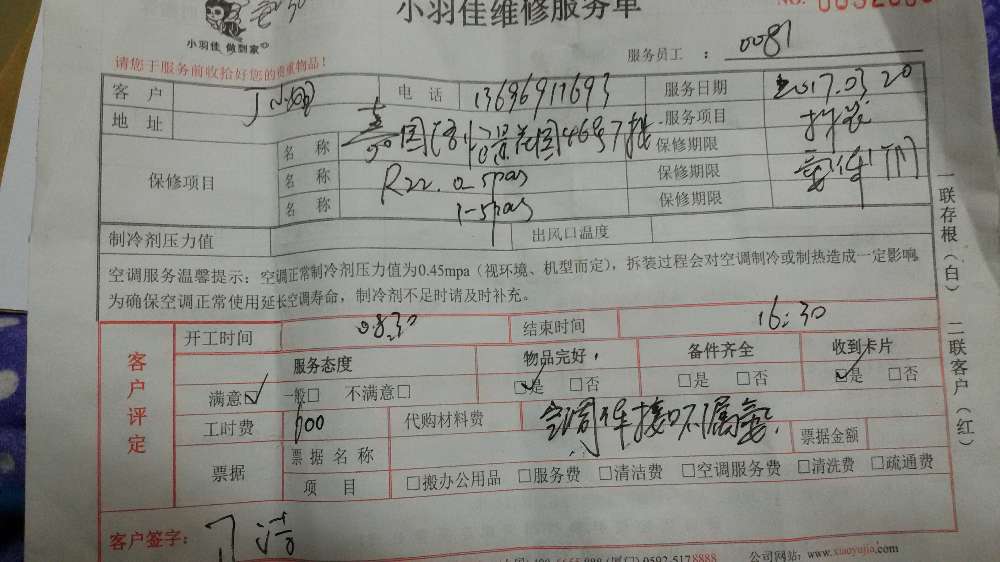 小羽佳维修服务单
NO.
小羽佳 做到家
请您于服务前收拾好您的贵重物品！
服务员工 ： 0081
客 户 电 话 13696911693 服务日期 2017.03 20
地 址 服务项目 拆装
保修项目 名 称 保修期限
名 称 R22. 保修期限
名 称 保修期限
制冷剂压力值 出风口温度
空调服务温馨提示：空调正常制冷剂压力值为0.45mpa（视环境、机型而定），拆装过程会对空调制冷或制热造成一定影响
为确保空调正常使用延长空调寿命，制冷剂不足时请及时补充。
客户评定
开工时间 08:30 结束时间 16:30
服务态度 物品完好 备件齐全 收到卡片
满意☑ 一般□ 不满意□ ☑是 □否 □是 □否 ☑是 □否
工时费 600 代购材料费
票据 票据名称 票据金额
项 目 □搬办公用品 □服务费 □清洁费 □空调服务费 □清洗费 □疏通费
客户签字：
公司网站：www.xiaoyujia.com
一联存根（白） 二联客户（红）